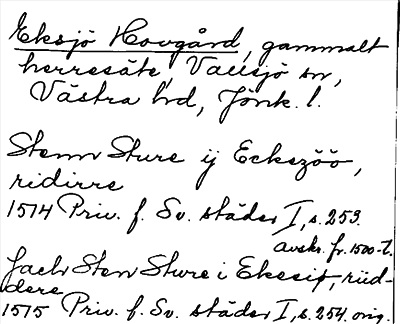 Eksjö Hovgård, gammalt
herresäte, Vallsjö sn,
Västra hd, Jönk. l.
Stenn Sture ij Eckszöö,
ridirre
1514 Priv. f. Sv. städer I, s. 253.
avskr. fr. 1500-t.
Jach Sten Sture i Ekesiö, riid-
dere
1515 Priv. f. Sv. städer I, s. 254. orig.